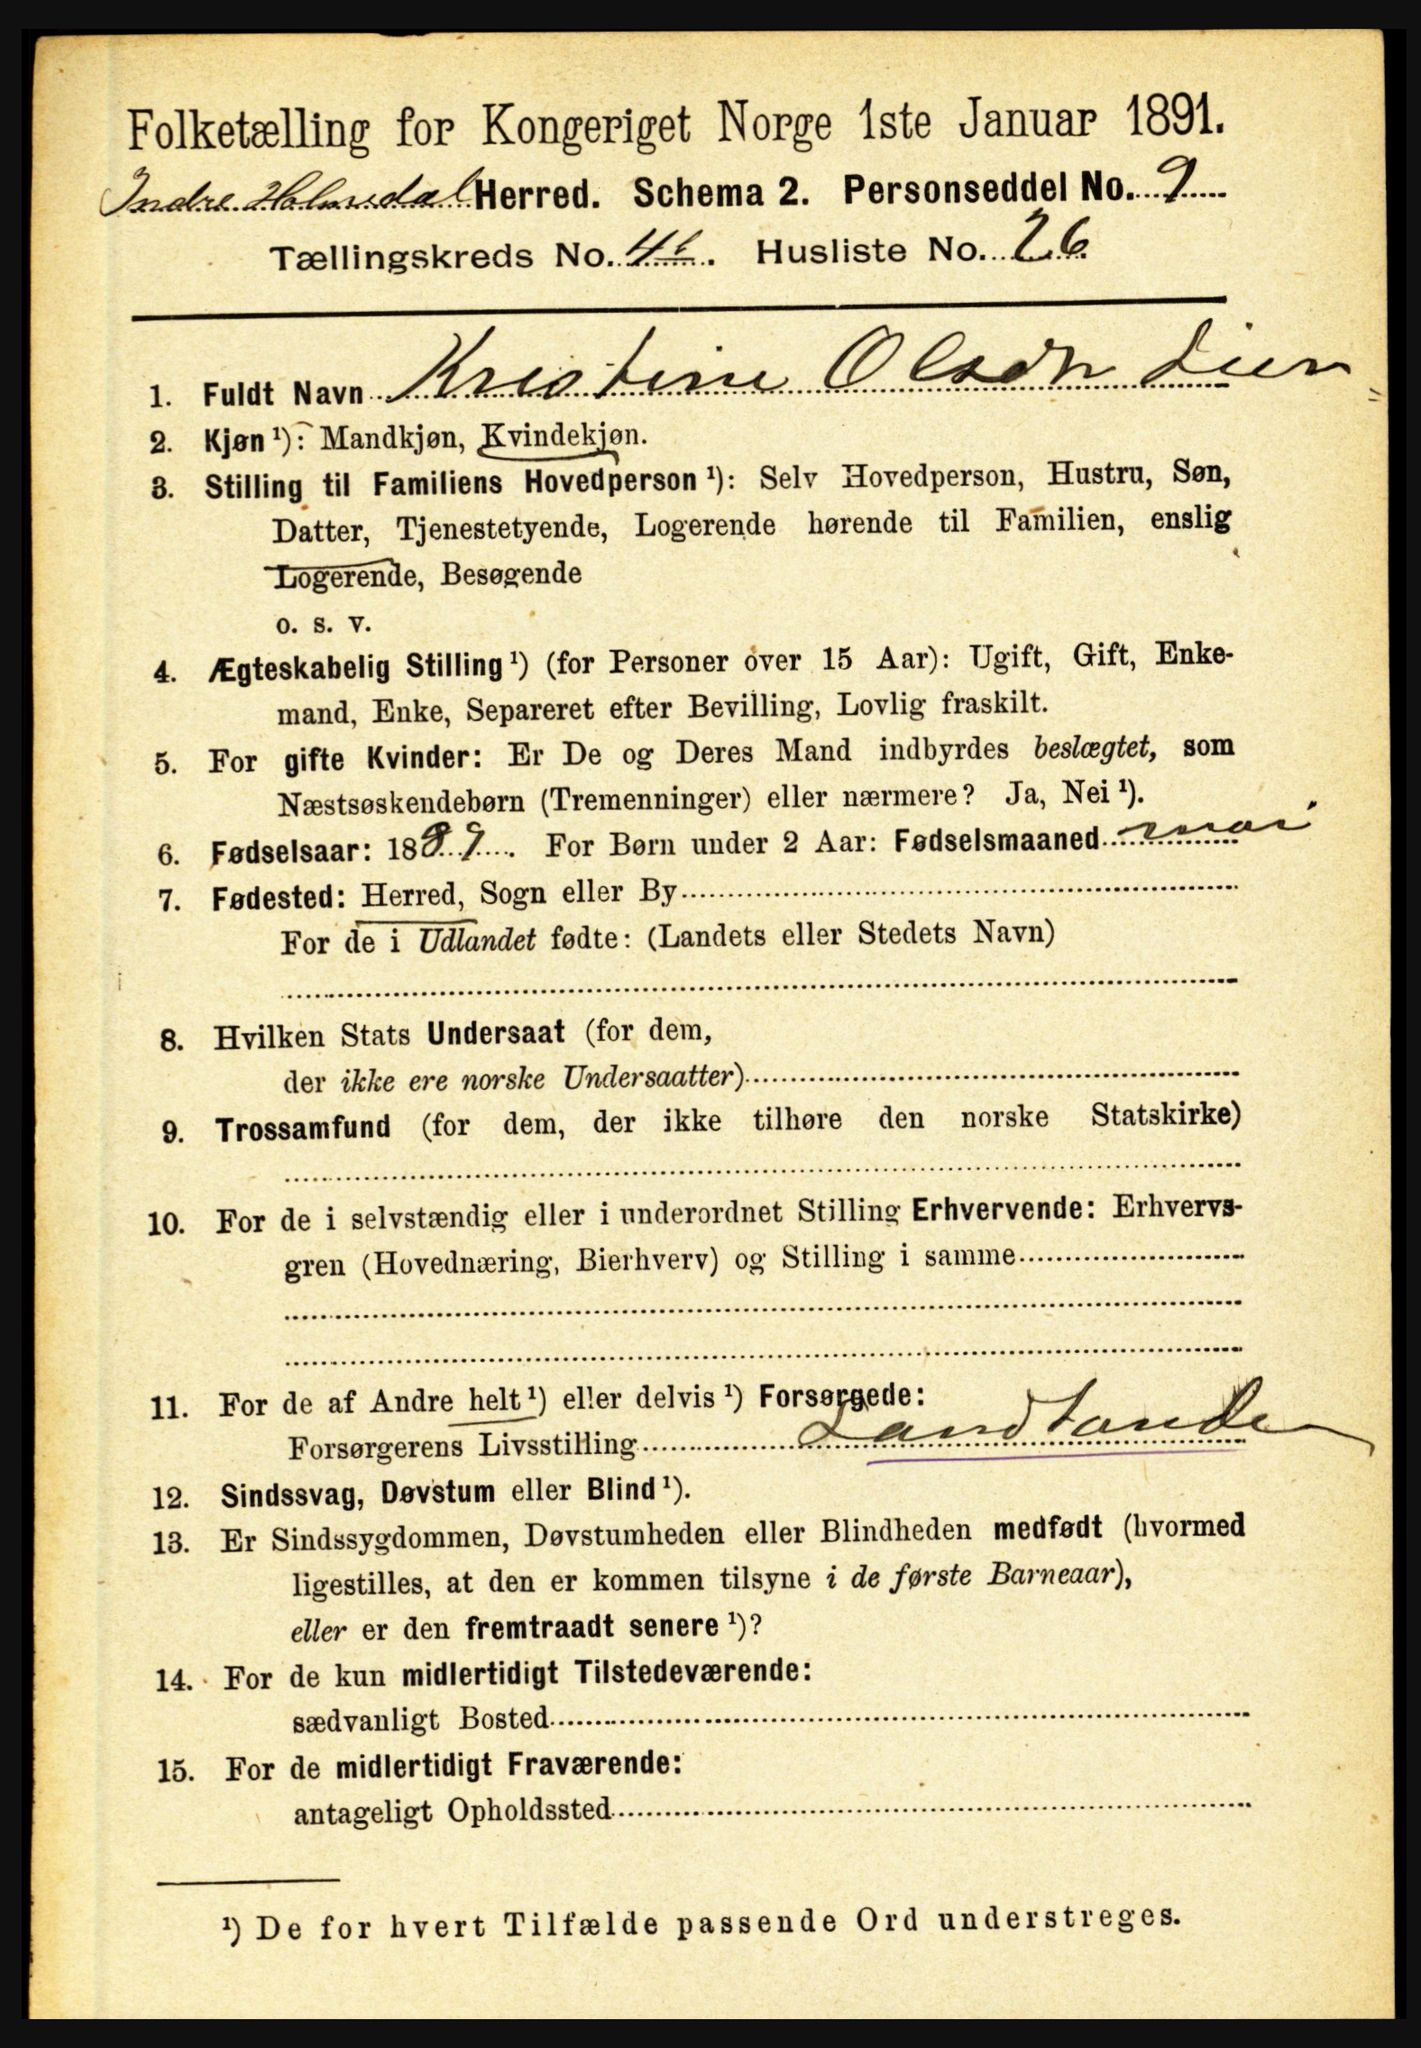 Folketælling for Kongeriget Norge 1ste Januar 1891.
Indre Holmedal Herred. Schema 2. Personseddel No. 9
Tællingskreds No. 4 Husliste No. 26
1. Fuldt Navn Kristine Olsdtr Lien
2. Kjøn ¹): Mandkjøn, Kvindekjøn.
3. Stilling til Familiens Hovedperson ¹): Selv Hovedperson, Hustru, Søn,
Datter, Tjenestetyende, Logerende hørende til Familien, enslig
Logerende, Besøgende
o. s. v.
4. Ægteskabelig Stilling ¹) (for Personer over 15 Aar): Ugift, Gift, Enke-
mand, Enke, Separeret efter Bevilling, Lovlig fraskilt.
5. For gifte Kvinder: Er De og Deres Mand indbyrdes beslægtet, som
Næstsøskendebørn (Tremenninger) eller nærmere? Ja, Nei ¹).
6. Fødselsaar: 1889. For Børn under 2 Aar: Fødselsmaaned mai
7. Fødested: Herred, Sogn eller By
For de i Udlandet fødte: (Landets eller Stedets Navn)
8. Hvilken Stats Undersaat (for dem,
der ikke ere norske Undersaatter)
9. Trossamfund (for dem, der ikke tilhøre den norske Statskirke)
10. For de i selvstændig eller i underordnet Stilling Erhvervende: Erhvervs-
gren (Hovednæring, Bierhverv) og Stilling i samme
11. For de af Andre helt ¹) eller delvis ¹) Forsørgede:
Forsørgerens Livsstilling
12. Sindssvag, Døvstum eller Blind ¹).
13. Er Sindssygdommen, Døvstumheden eller Blindheden medfødt (hvormed
ligestilles, at den er kommen tilsyne i de første Barneaar),
eller er den fremtraadt senere ¹)?
14. For de kun midlertidigt Tilstedeværende:
sædvanligt Bosted
15. For de midlertidigt Fraværende:
antageligt Opholdssted
¹) De for hvert Tilfælde passende Ord understreges.